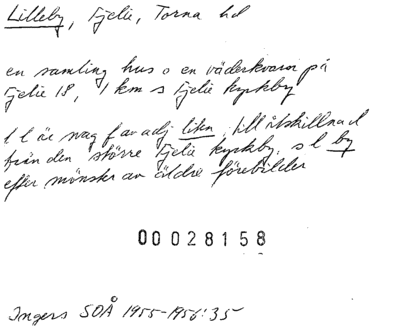 Lilleby, Fjelie, Torna hd
en samling hus o en väderkvarn på
Fjelie 18, 1 km s Fjelie kyrkby
f l är svag f av adj liten, till åtskillnad
från den större Fjelie kyrkby, s l by
efter mönster av äldre förebilder
00028158
Ingers SOÅ 1955-1956:35